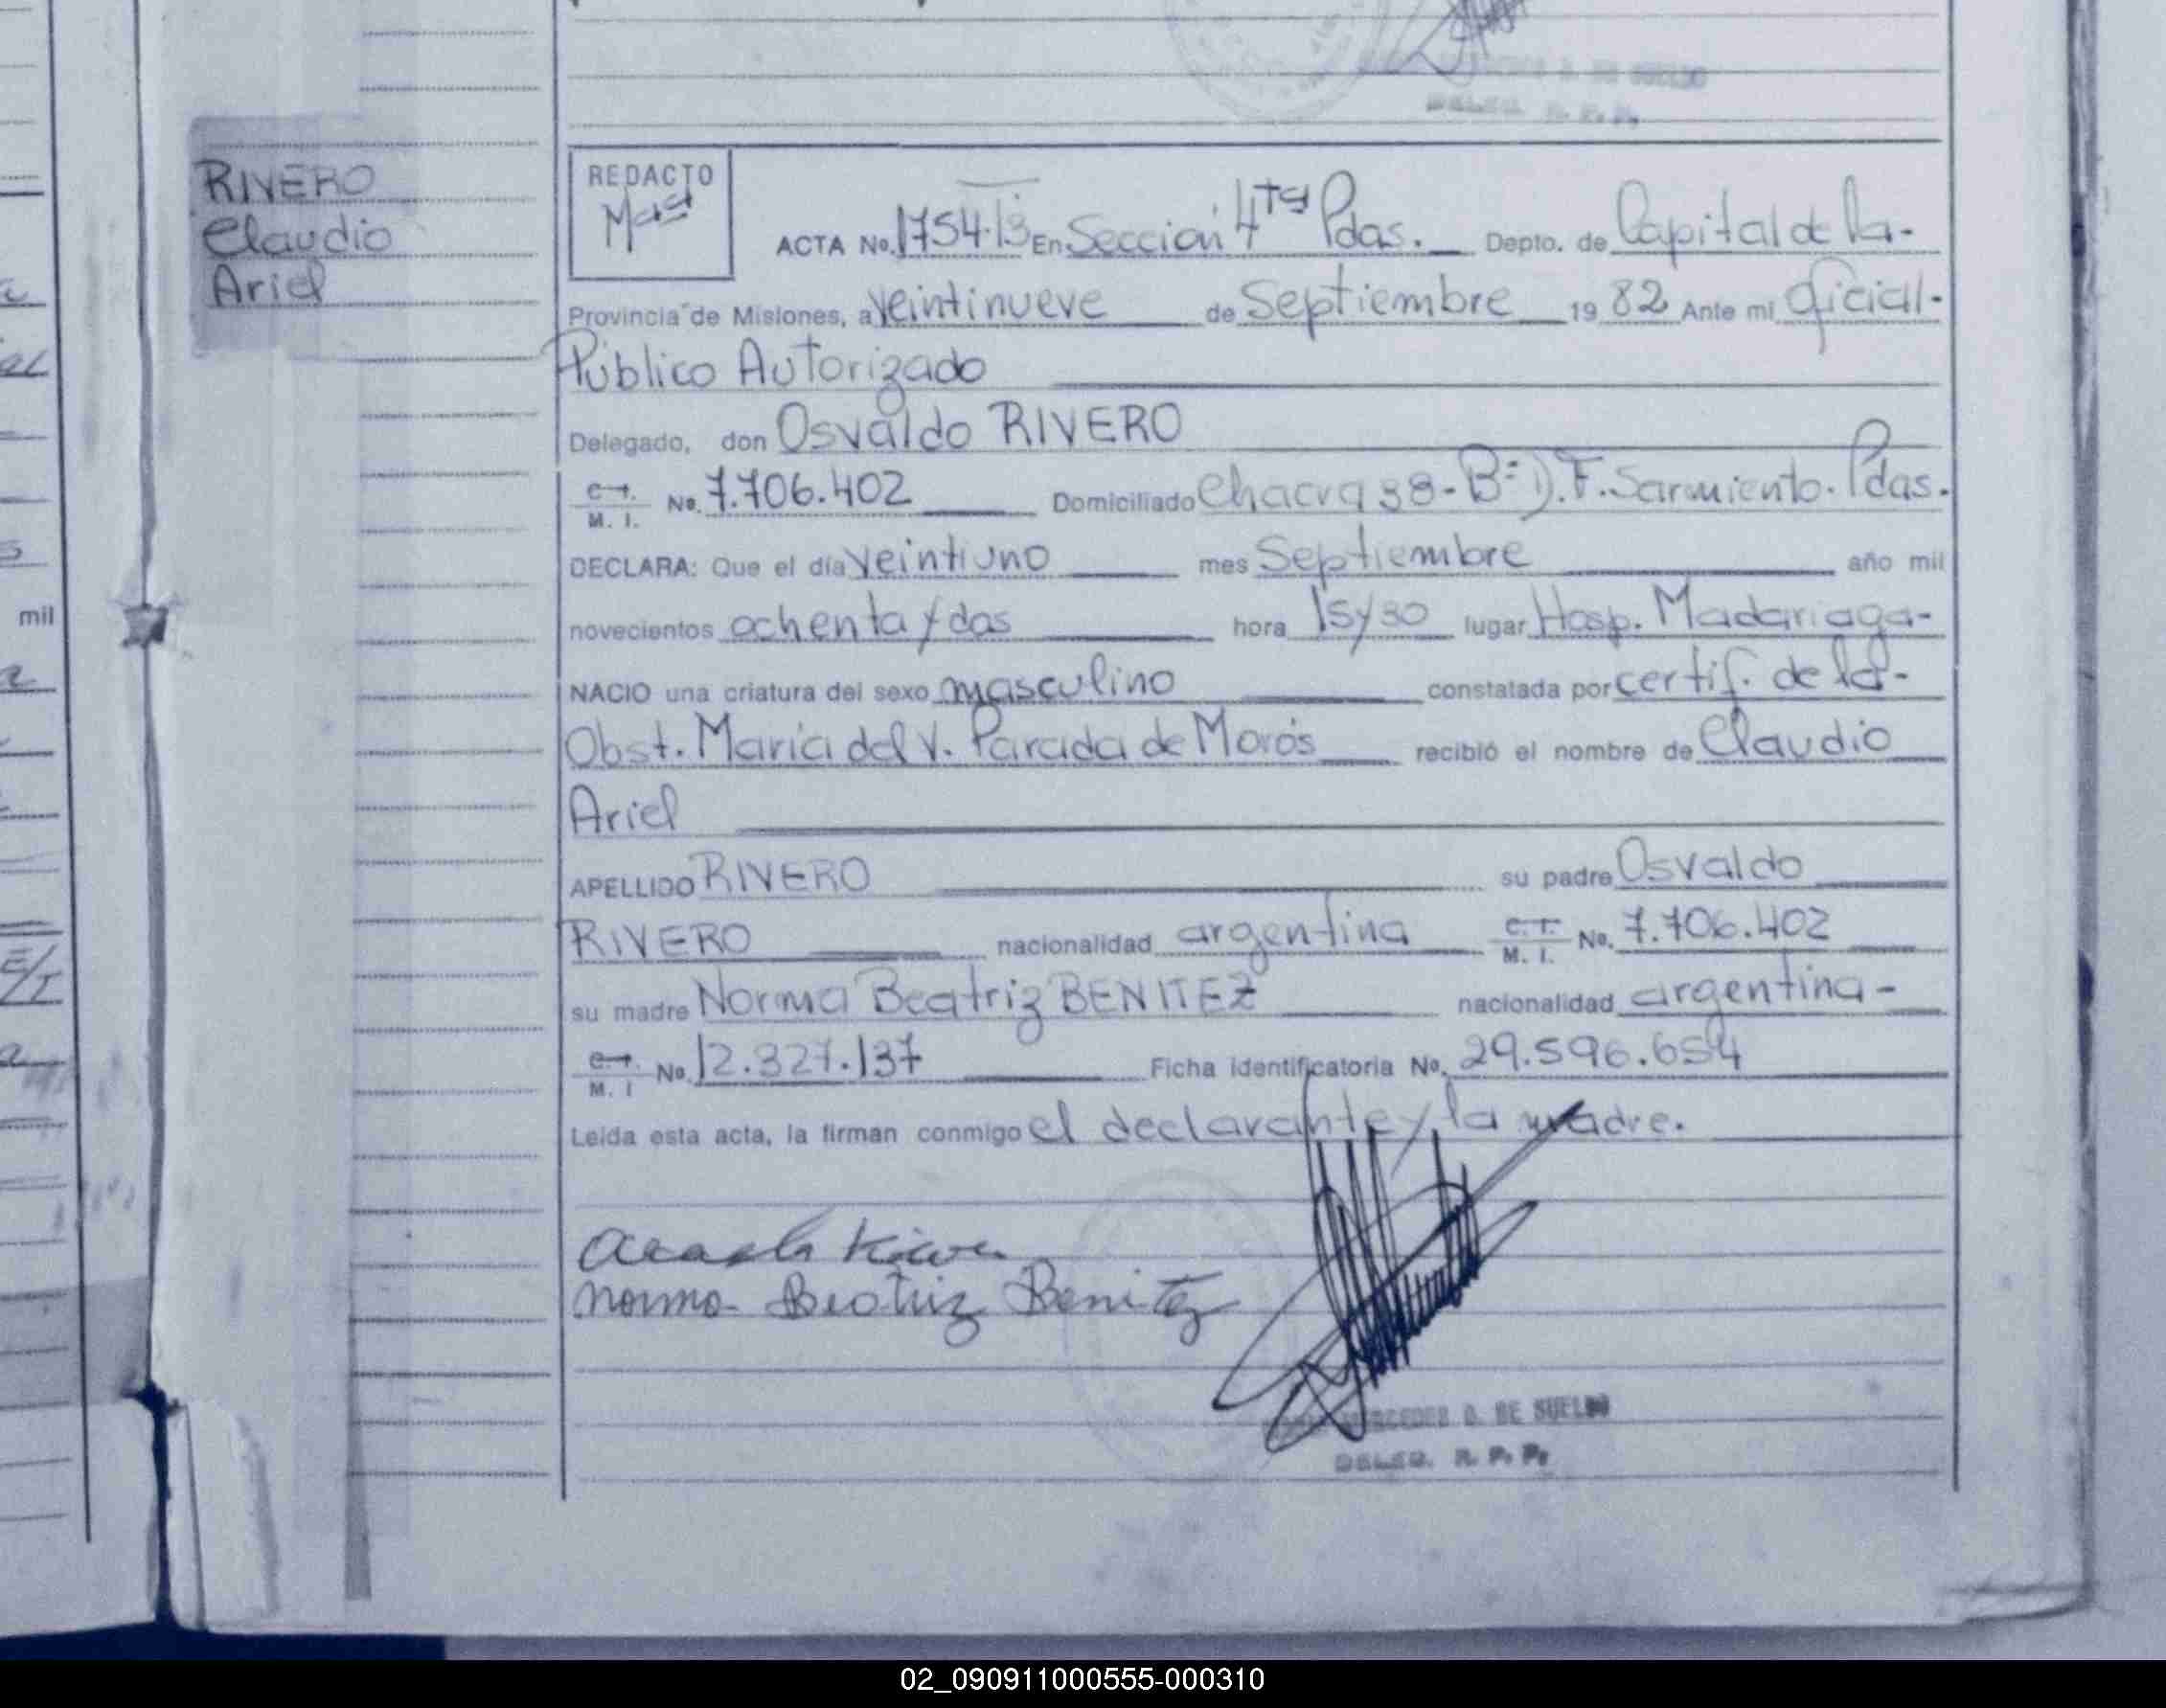 DE SUELDO
DELEG. R. P. P.
RIVERO
Claudio
Ariel
REDACTO
ACTA No. 1754 En Sección 4ta Pdas. Depto. de Capital de la-
Provincia de Misiones, a veintinueve de Septiembre 1982 Ante mi Oficial-
Público Autorizado
Delegado, don Osvaldo RIVERO
C.I. M. I. No. 7.706.402 Domiciliado Chacra 38-Bº D.F. Sarmiento. Pdas.
DECLARA: Que el día veintiuno mes Septiembre año mil
novecientos ochenta y dos hora 15y30 lugar Hosp. Madariaga-
NACIO una criatura del sexo masculino constatada por certif. de la-
Obst. María del V. Parada de Morós recibió el nombre de Claudio
Ariel
APELLIDO RIVERO su padre Osvaldo
RIVERO nacionalidad argentina C.I. M. I. No. 7.706.402
su madre Norma Beatriz BENITEZ nacionalidad argentina-
C.I. M. I No. 12.327.137 Ficha identificatoria No. 29.596.654
Leída esta acta, la firman conmigo el declarante y la madre.
Norma Beatriz Benitez
MERCEDES D. DE SUELDO
DELEG. R. P. P.
mil
E/I
02_090911000555-000310